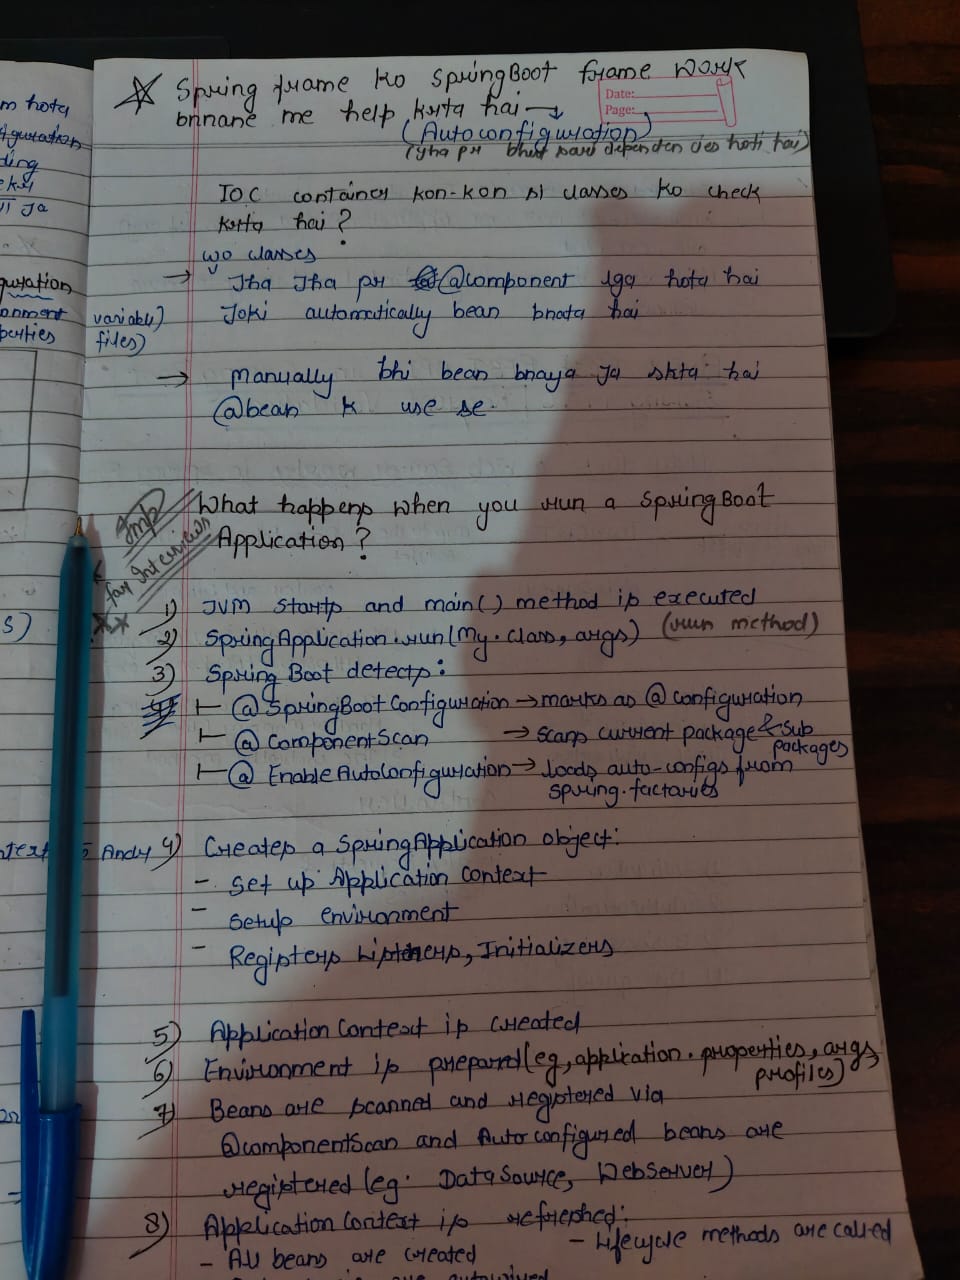 Spring frame ko SpringBoot frame work
bnnane me help krta hai →
Date:
Page:
(Autoconfiguration)
(yha pr bhut sari dependencies hoti hai)
IOC container kon-kon si classes ko check
krta hai?
wo classes
→ Jha Jha pr @component lga hota hai
Joki automatically bean bnata hai
→ manually bhi bean bnaya ja skta hai
@bean k use se.
Imp
for Interviews
What happens when you run a SpringBoot
Application?
1) JVM starts and main() method is executed
2) SpringApplication.run(My.class, args) (run method)
3) Spring Boot detects:
@SpringBootConfiguration → marks as @configuration
@ComponentScan → scans current package & sub
packages
@EnableAutoConfiguration → loads auto-configs from
spring.factories
4) Creates a SpringApplication object:
- Set up Application Context
- Setup environment
- Registers Listeners, Initializers
5) Application Context is created
6) Environment is prepared (eg, application.properties, args,
profiles)
7) Beans are scanned and registered via
@componentScan and Auto configured beans are
registered (eg. DataSource, WebServer)
8) Application Context is refreshed:
- All beans are created - Lifecycle methods are called
m hota
ding
ja
onment variable)
files)